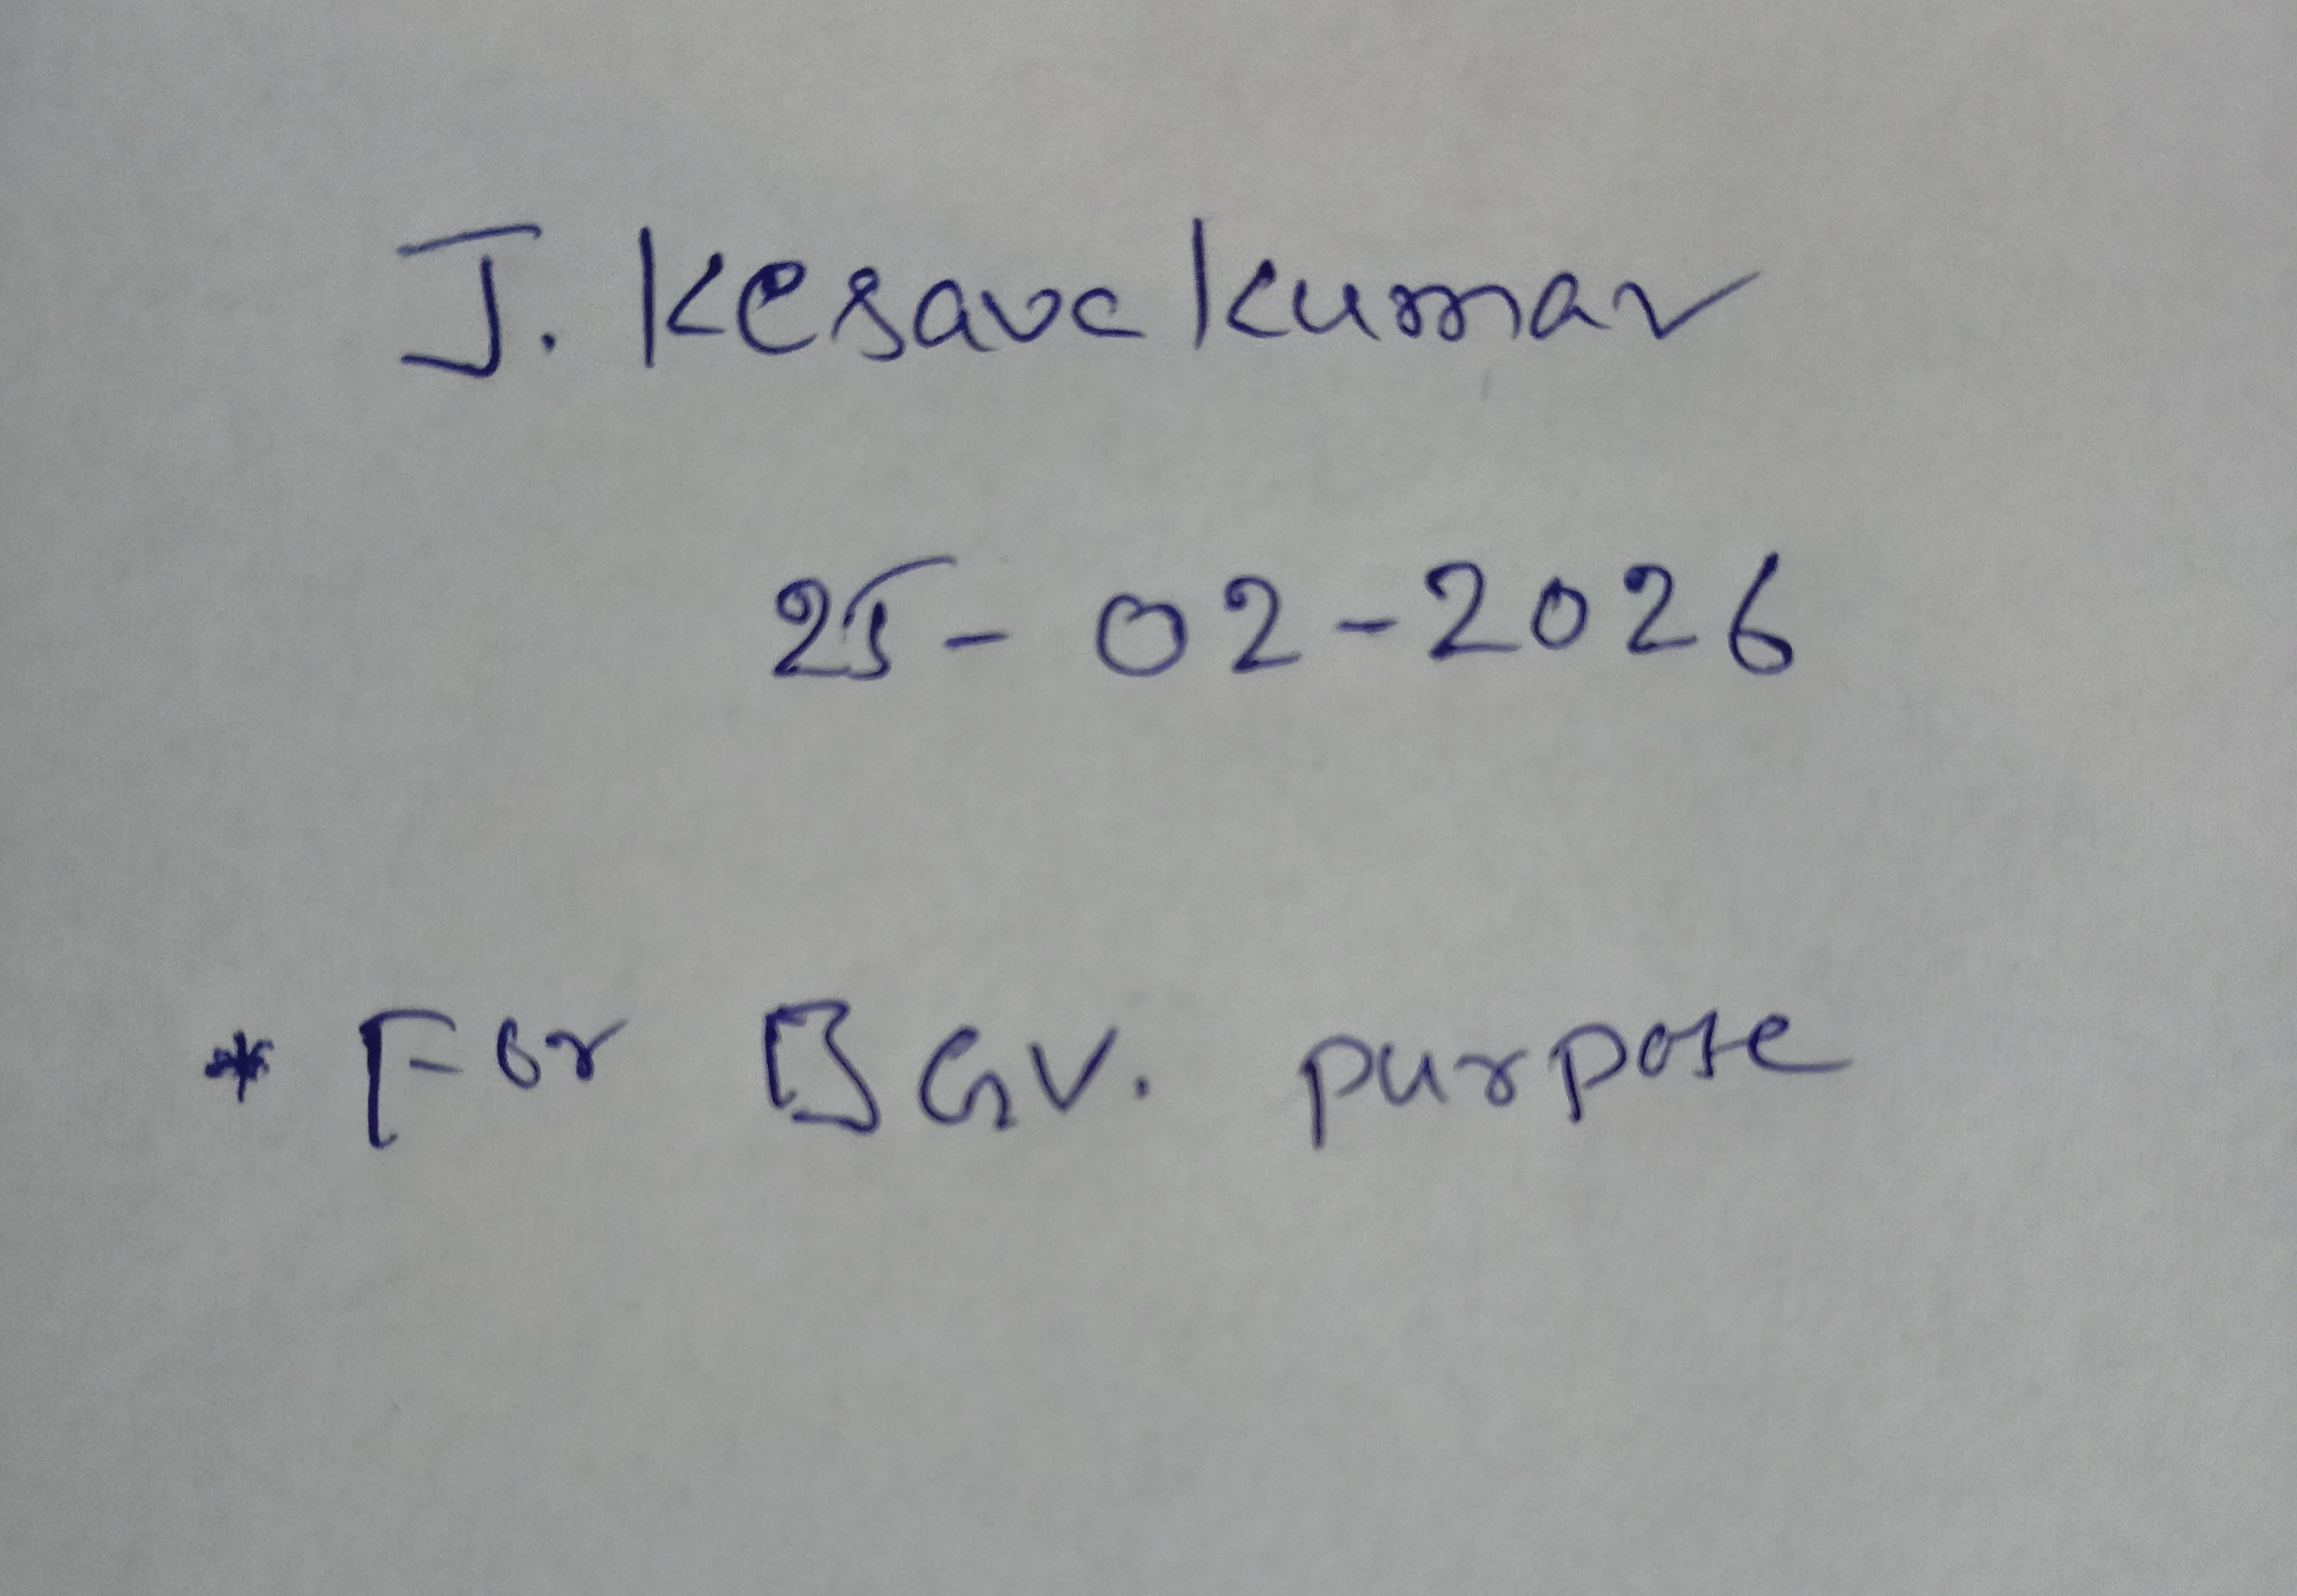 J. Kesava Kumar
25-02-2026
* For BGV. purpose